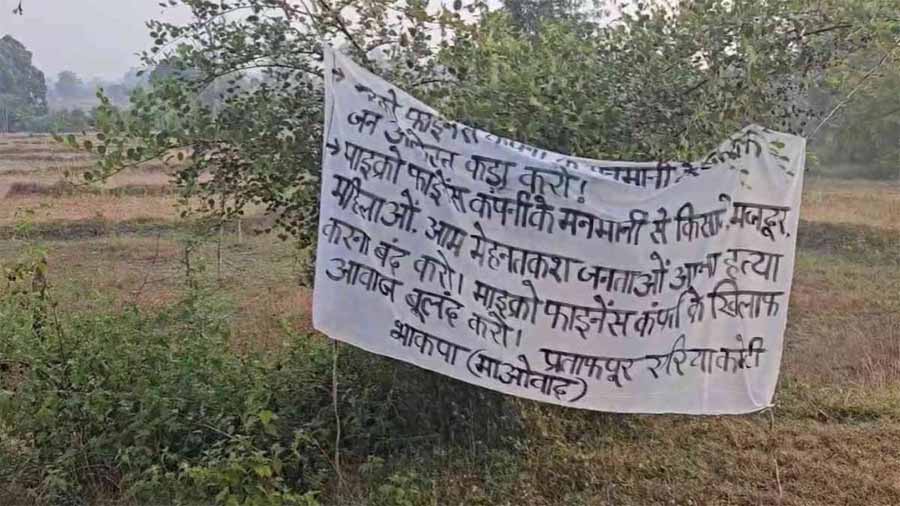 फाइनेंस
जन आंदोलन कड़ा करो!
→ माइक्रो फाइेंस कंपनी के मनमानी से किसान, मजदूर,
महिलाओं. आम मेहनतकश जनताओं आत्मा हत्या
करना बंद करो। माइक्रो फाइनेंस कंपनी के खिलाफ
आवाज बूलंद करो।
प्रतापपूर एरिया कमेटी
भाकपा (माओवाद)